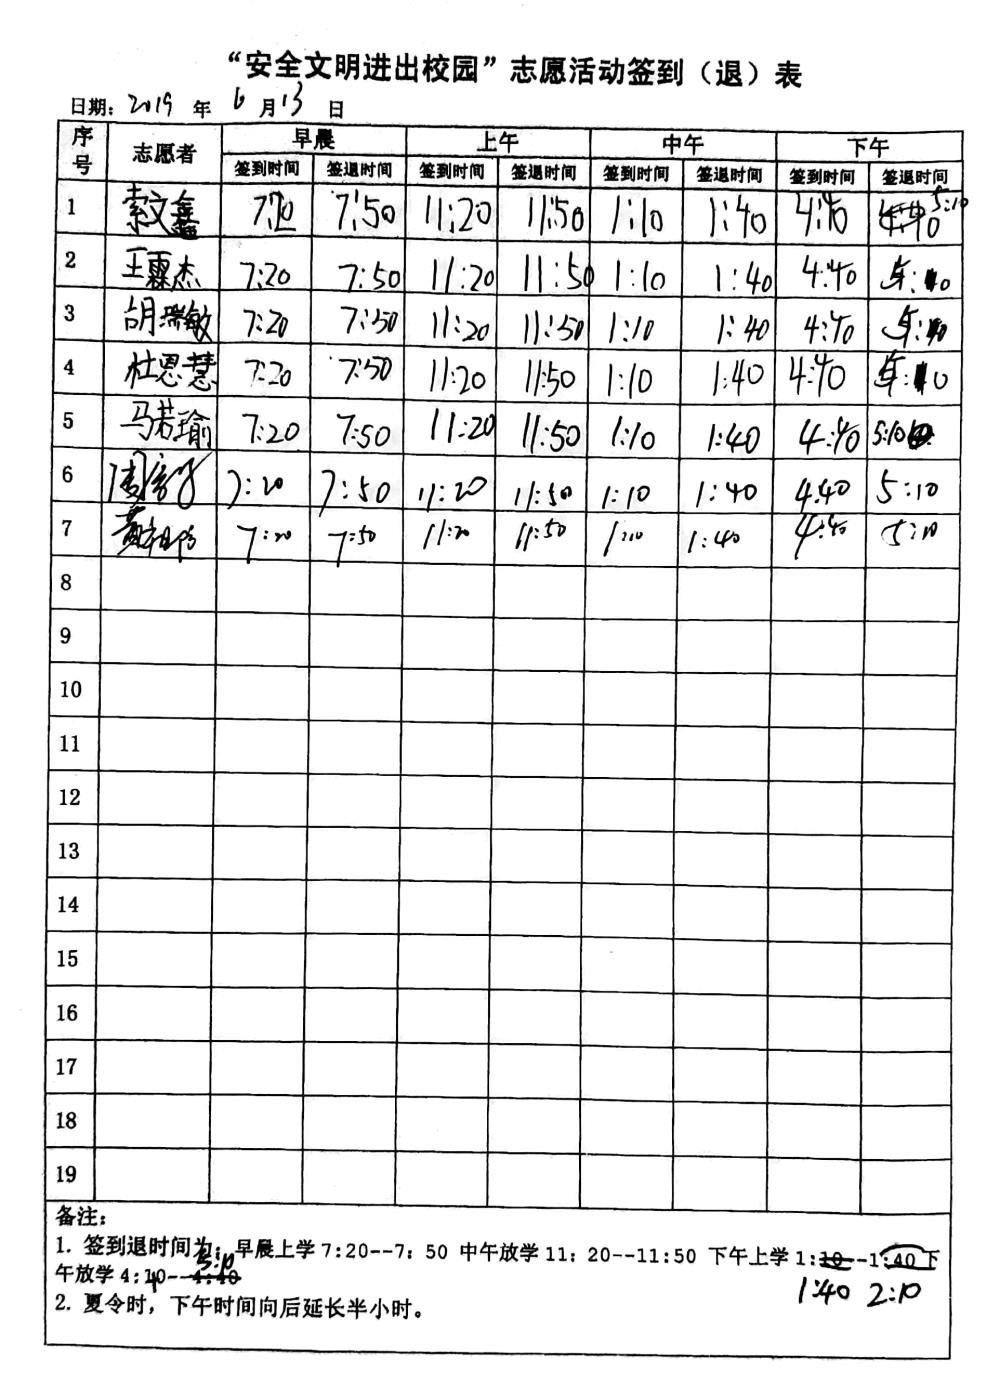 “安全文明进出校园”志愿活动签到（退）表
日期：2019 年 6 月 13 日
序号 志愿者 早晨 上午 中午 下午
签到时间 签退时间 签到时间 签退时间 签到时间 签退时间 签到时间 签退时间
1 索文鑫 7:20 7:50 11:20 11:50 1:10 1:40 4:40 5:10
2 王霖杰 7:20 7:50 11:20 11:50 1:10 1:40 4:40 5:10
3 胡瑞敏 7:20 7:50 11:20 11:50 1:10 1:40 4:40 5:10
4 杜恩慧 7:20 7:50 11:20 11:50 1:10 1:40 4:40 5:10
5 马若瑜 7:20 7:50 11:20 11:50 1:10 1:40 4:40 5:10
6 7:20 7:50 11:20 11:50 1:10 1:40 4:40 5:10
7 7:20 7:50 11:20 11:50 1:10 1:40 4:40 5:10
8
9
10
11
12
13
14
15
16
17
18
19
备注：
1. 签到退时间为：早晨上学 7:20--7：50 中午放学 11：20--11:50 下午上学 1:10--1:40 下
午放学 4:40--4:40 5:10
1:40 2:10
2. 夏令时，下午时间向后延长半小时。